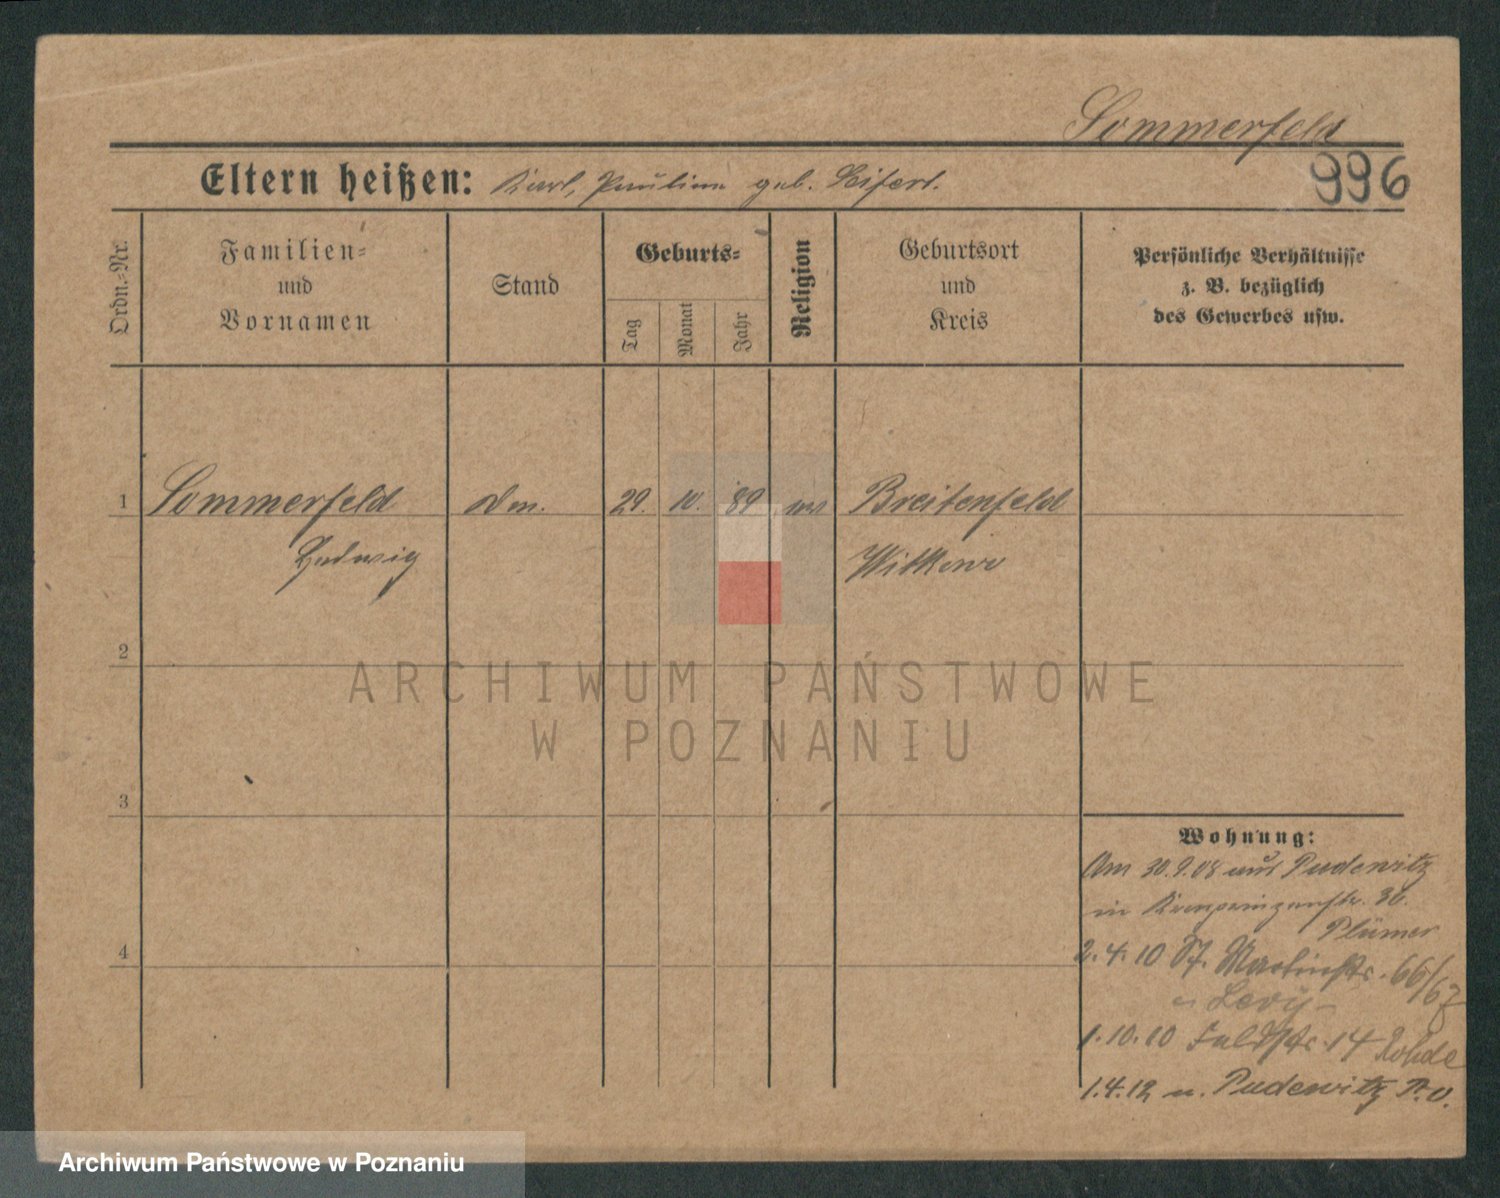 Sommerfeld
996
Eltern heißen: Karl, Pauline geb. Seifert.
Ordn.-Nr.
Familien-
und
Vornamen
Stand
Geburts-
Tag
Monat
Jahr
Religion
Geburtsort
und
Kreis
Persönliche Verhältnisse
z. B. bezüglich
des Gewerbes usw.
1 Sommerfeld 29. 10. 89 Breitenfeld
Ludwig Witkowo
2
ARCHIWUM PAŃSTWOWE
W POZNANIU
3
Wohnung:
Am 30.9.08 aus Pudewitz
in Kronprinzenstr. 36.
Plümer
4
2.4.10 St. Martinstr. 66/67
- Levy -
1.10.10 Feldstr. 14 Rohde
1.4.12 n. Pudewitz
Archiwum Państwowe w Poznaniu